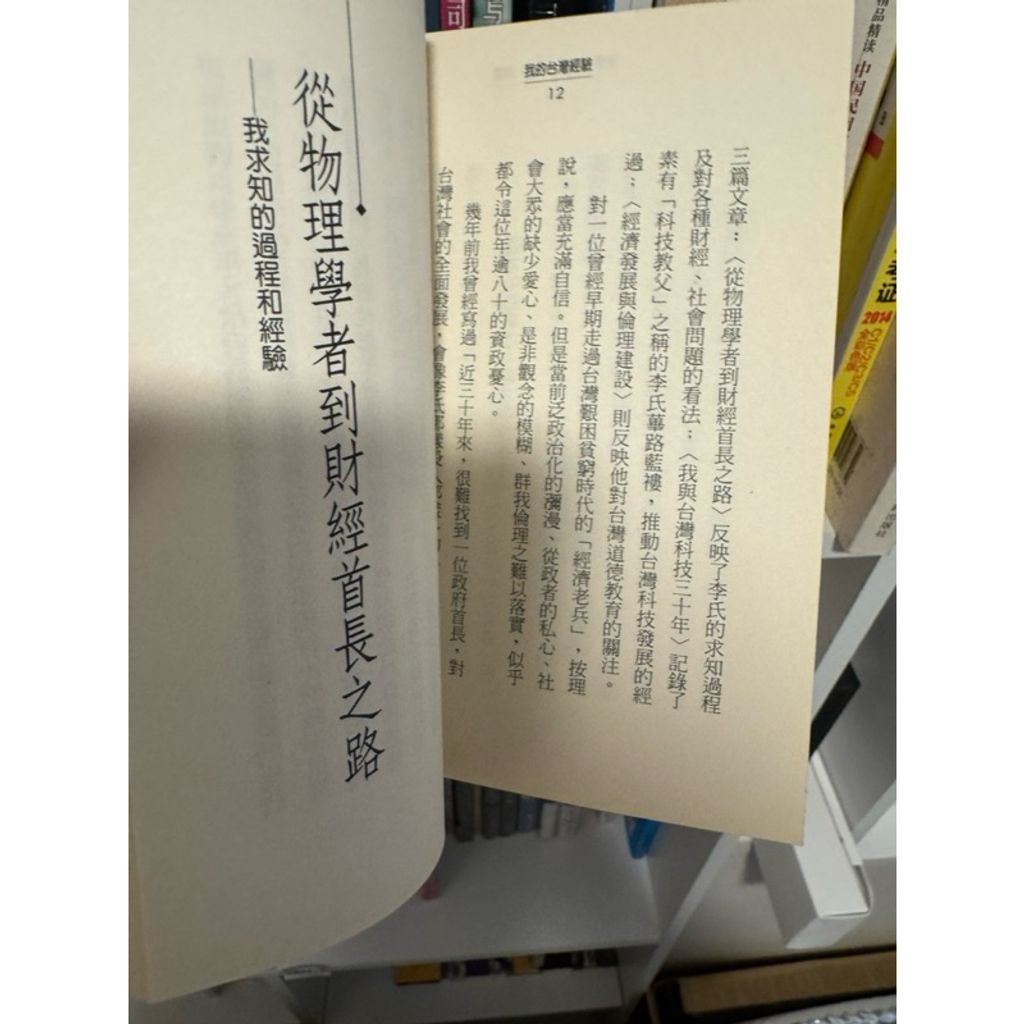 我的台灣經驗
12
三篇文章：〈從物理學者到財經首長之路〉反映了李氏的求知過程
及對各種財經、社會問題的看法；〈我與台灣科技三十年〉記錄了
素有「科技教父」之稱的李氏蓽路藍褸，推動台灣科技發展的經
過；〈經濟發展與倫理建設〉則反映他對台灣道德教育的關注。
對一位曾經早期走過台灣艱困貧窮時代的「經濟老兵」，按理
說，應當充滿自信。但是當前泛政治化的瀰漫、從政者的私心、社
會大眾的缺少愛心、是非觀念的模糊、群我倫理之難以落實，似乎
都令這位年逾八十的資政憂心。
幾年前我曾經寫過「近三十年來，很難找到一位政府首長，對
台灣社會的全面發展，會像李氏那樣
從物理學者到財經首長之路
——我求知的過程和經驗
中国民
2014